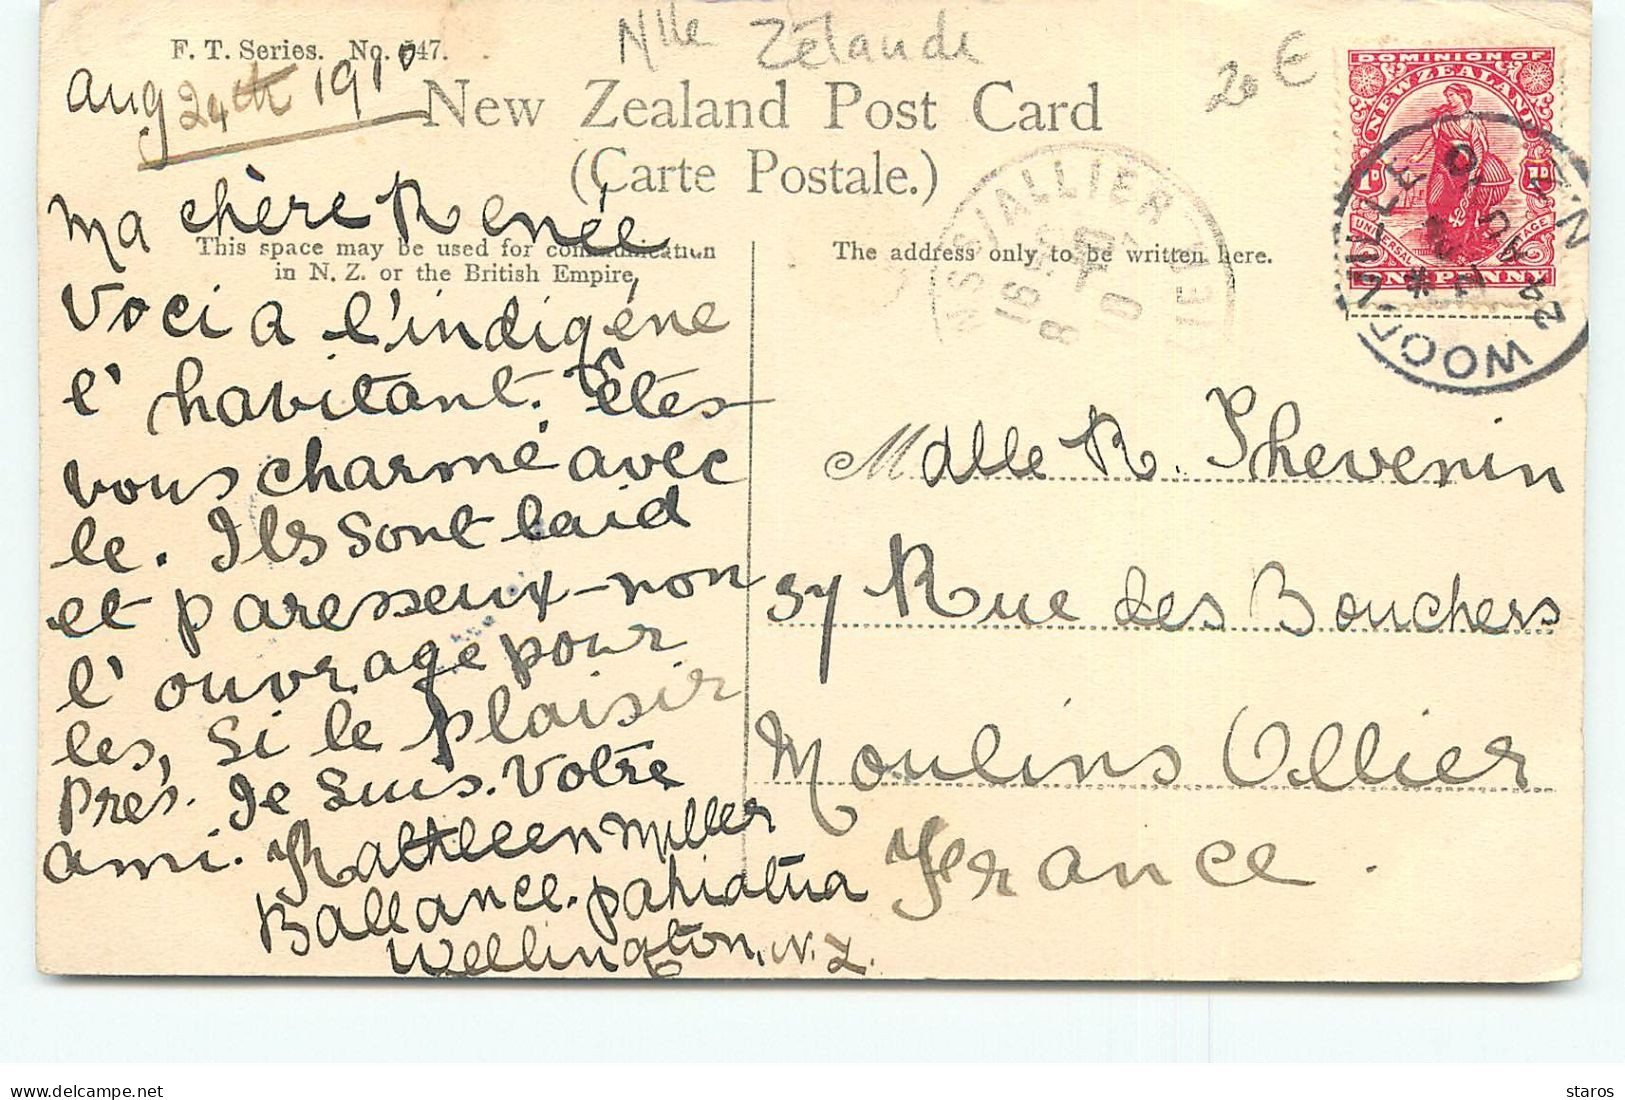 F. T. Series. No. 547.
Nlle Zélande
20 E
Aug 24th 1910
New Zealand Post Card
(Carte Postale.)
This space may be used for communication
in N. Z. or the British Empire.
The address only to be written here.
Ma chère Renée
Voci a l'indigéne
l' havitant. Êtes
vous charmé avec
le. Ils sont laid
et paresseux-non
l' ouvrage pour
les, si le plaisir
Prés. Je suis. Votre
ami. Kathleen Miller
Ballance. Pahiatua
Wellington, N.Z.
Mdlle R. Thevenin
57 Rue des Bouchers
Moulins Allier
France.
DOMINION OF
NEW ZEALAND
1D 1D
UNIVERSAL POSTAGE
ONE PENNY
WOODVILLE N.Z
24
ALLIER
16
8 10
staros